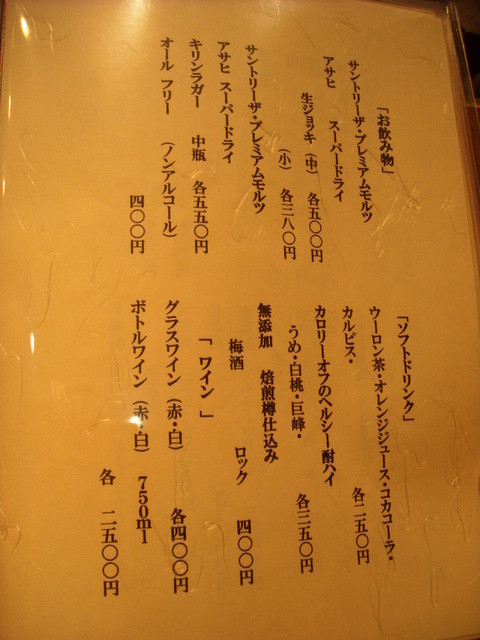 「お飲み物」
サントリーザ・プレミアムモルツ
アサヒ スーパードライ
生ジョッキ (中) 各五〇〇円
(小) 各三八〇円
サントリーザ・プレミアムモルツ
アサヒ スーパードライ
キリンラガー 中瓶 各五五〇円
オール フリー (ノンアルコール)
四〇〇円
「ソフトドリンク」
ウーロン茶・オレンジジュース・コカコーラ・
カルピス・ 各二五〇円
カロリーオフのヘルシー酎ハイ
うめ・白桃・巨峰・ 各三五〇円
無添加 焙煎樽仕込み
梅酒 ロック 四〇〇円
「 ワイン 」
グラスワイン (赤・白) 各四〇〇円
ボトルワイン (赤・白) 750ml
各 二五〇〇円